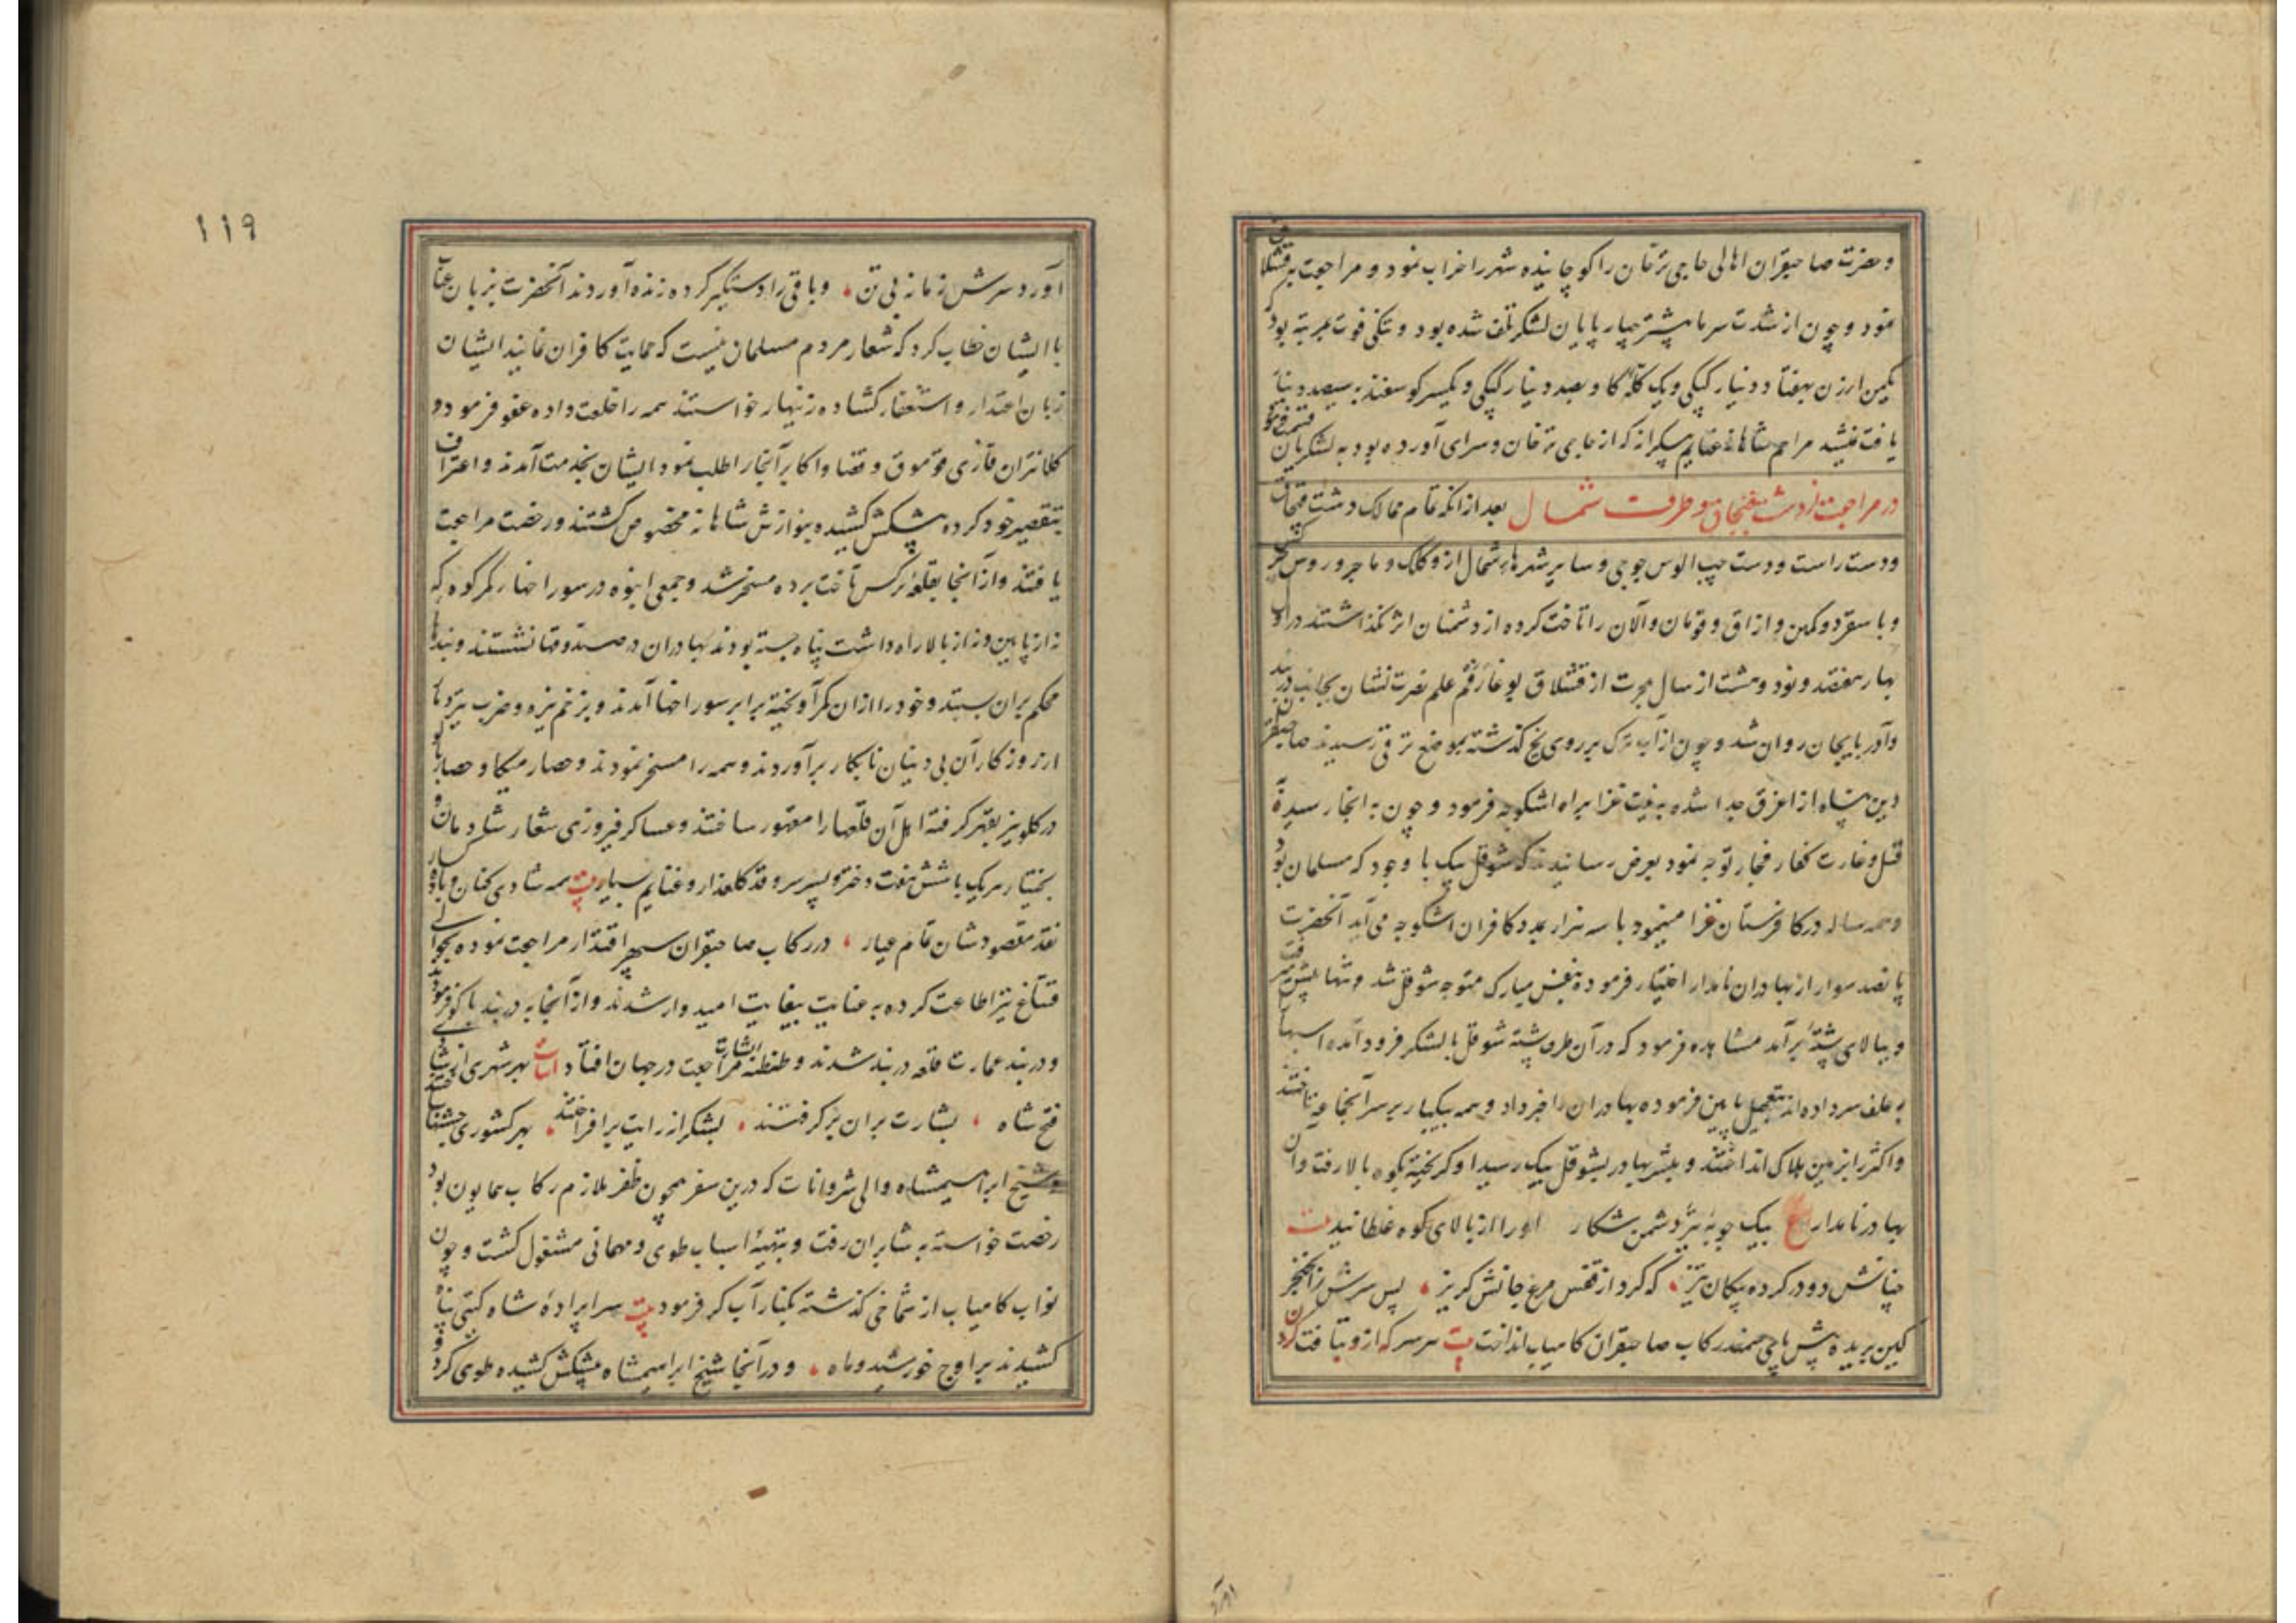 وحضرت صاحبقران اهالی حاجی ترخان را کوچانیده شهر را خراب نمود و مراجعت به قشلاق
نمود و چون از شدت سرما بیشتر چهارپایان لشکر تلف شده بود و تنکی قوت بمرتبهٔ بود که
یکمن ارزن بهفتاد دینار کپکی و یک کلهٔ کاو بصد دینار کپکی و یکسر کوسفند به سیصد دینار
یافت نمیشد مراحم شاهانه غنایم بیکرانرا که از حاجی ترخان و سرای آورده بود به لشکریان قسمت فرمود
در مراجعت از دشت قبچاق و طرف شمال بعد از انکه تمام ممالک دشت قبچاق
و دست راست و دست چپ الوس جوجی و سایر شهرهای شمال از اوکک و ماجر و روس و چرکس
و باسقرد و مکس و ازاق و قوبان و آلان را تاخت کرده از دشمنان اثر نکذاشتند در اول
بهار هفتصد و نود و هشت از سال هجرت از قشلاق بوغاز قم علم نصرت نشان بجانب دربند
و آذربایجان روان شد و چون از آب ترک بر روی یخ کذشته بموضع ترقی رسیدند صاحبقران
دین پناه از اغرق جدا شده به نیت غزا براه اشکوجه فرمود و چون به انجا رسید
قتل و غارت کفار فجار توجه نمود بعرض رسانیدند که شوقل بیک با وجود که مسلمان بود
و همه ساله در کافرستان غزا مینمود با سه هزار بمدد کافران اشکوجه می آید آنحضرت
پانصد سوار از بهادران نامدار اختیار فرموده بنفس مبارک متوجه شوقل شد و تنها پیش رفت
و ببالای پشتهٔ برآمد مشاهده فرمود که در آن طرف پشته شوقل با لشکر فرود آمده اسبها
به علف سر داده اند بتعجیل پایین فرموده بهادران را خبر داد و همه بیکبار بر سر آنجماعه تاختند
و اکثر را بزمین هلاک انداختند و مبشر بهادر بشوقل بیک رسید او کریخته بکوه بالا رفت و آن
بهادر نامدار ع بیک چوبهٔ تیر دشمن شکار اورا از بالای کوه غلطانید بیت
چنانش دودر کرده پیکان تیز ، که کرد از قفس مرغ جانش کریز ، پس سرش را بخنجر
کین بریده پیش پای سمند رکاب صاحبقران کامیاب انداخت بیت هر سر که از و بتافت کردن
۱۱۹
آورد سرش زمانه بی تن ، و باقی را دستگیر کرده زنده آوردند آنحضرت بزبان عتاب
با ایشان خطاب کرد که شعار مردم مسلمان نیست که حمایت کافران نمایند ایشان
زبان اعتذار و استغفار کشاده زینهار خواستند همه را خلعت داده عفو فرمود و
کلانتران قازی قوموق و قضاه و اکابر آنجا را طلب نمود ایشان بخدمت آمدند و اعتراف
بتقصیر خود کرده پیشکش کشیده بنوازش شاهانه مخصوص کشتند و رخصت مراجعت
یافتند و از آنجا بقلعهٔ نرکس تاخت برده مسخر شد و جمعی انبوه در سوراخهای کمر کوه که
نه از پایین و نه از بالا راه داشت پناه جسته بودند بهادران در صندوقها نشستند و بندها
محکم بران بستند و خود را از ان کمر آویخته برابر سوراخها آمدند و بزخم نیزه و ضرب تیر دمار
از روزکار آن بی دینان نابکار برآوردند و همه را مسخر نمودند و حصار میکا و حصار بالو
درکلو نیز بقهر کرفته اهل آن قلعها را مقهور ساختند و عساکر فیروزی شعار شادمان و
بختیار هر یک با شش هفت دختر و پسر سرو قد کلعذار و غنایم بسیار بیت همه شادی کنان و باده
نقد مقصودشان تمام عیار ، در رکاب صاحبقران سپهر اقتدار مراجعت نموده
قیتاغ نیز اطاعت کرده به عنایت بیغایت امیدوار شدند و از آنجا به دربند باکو فرمود
و در بند عمارت قلعه دربند شدند و طنطنهٔ بشارت مراجعت در جهان افتاد ابیات بهر شهری از
فتح شاه ، بشارت بران برکرفتند ، بشکر از رایت برافراختند ، بهر کشوری جشنها ساختند
و شیخ ابراهیمشاه والی شروانات که درین سفر همچون ظفر ملازم رکاب همایون بود
رخصت خواسته به شابران رفت و بتهیهٔ اسباب طوی و مهمانی مشغول کشت و چون
نواب کامیاب از شماخی کذشته بکنار آب کر فرمود بیت سراپردهٔ شاه کیتی پناه
کشیدند بر اوج خورشید و ماه ، و در آنجا شیخ ابراهیمشاه پیشکش کشیده طوی کرد و
آورد